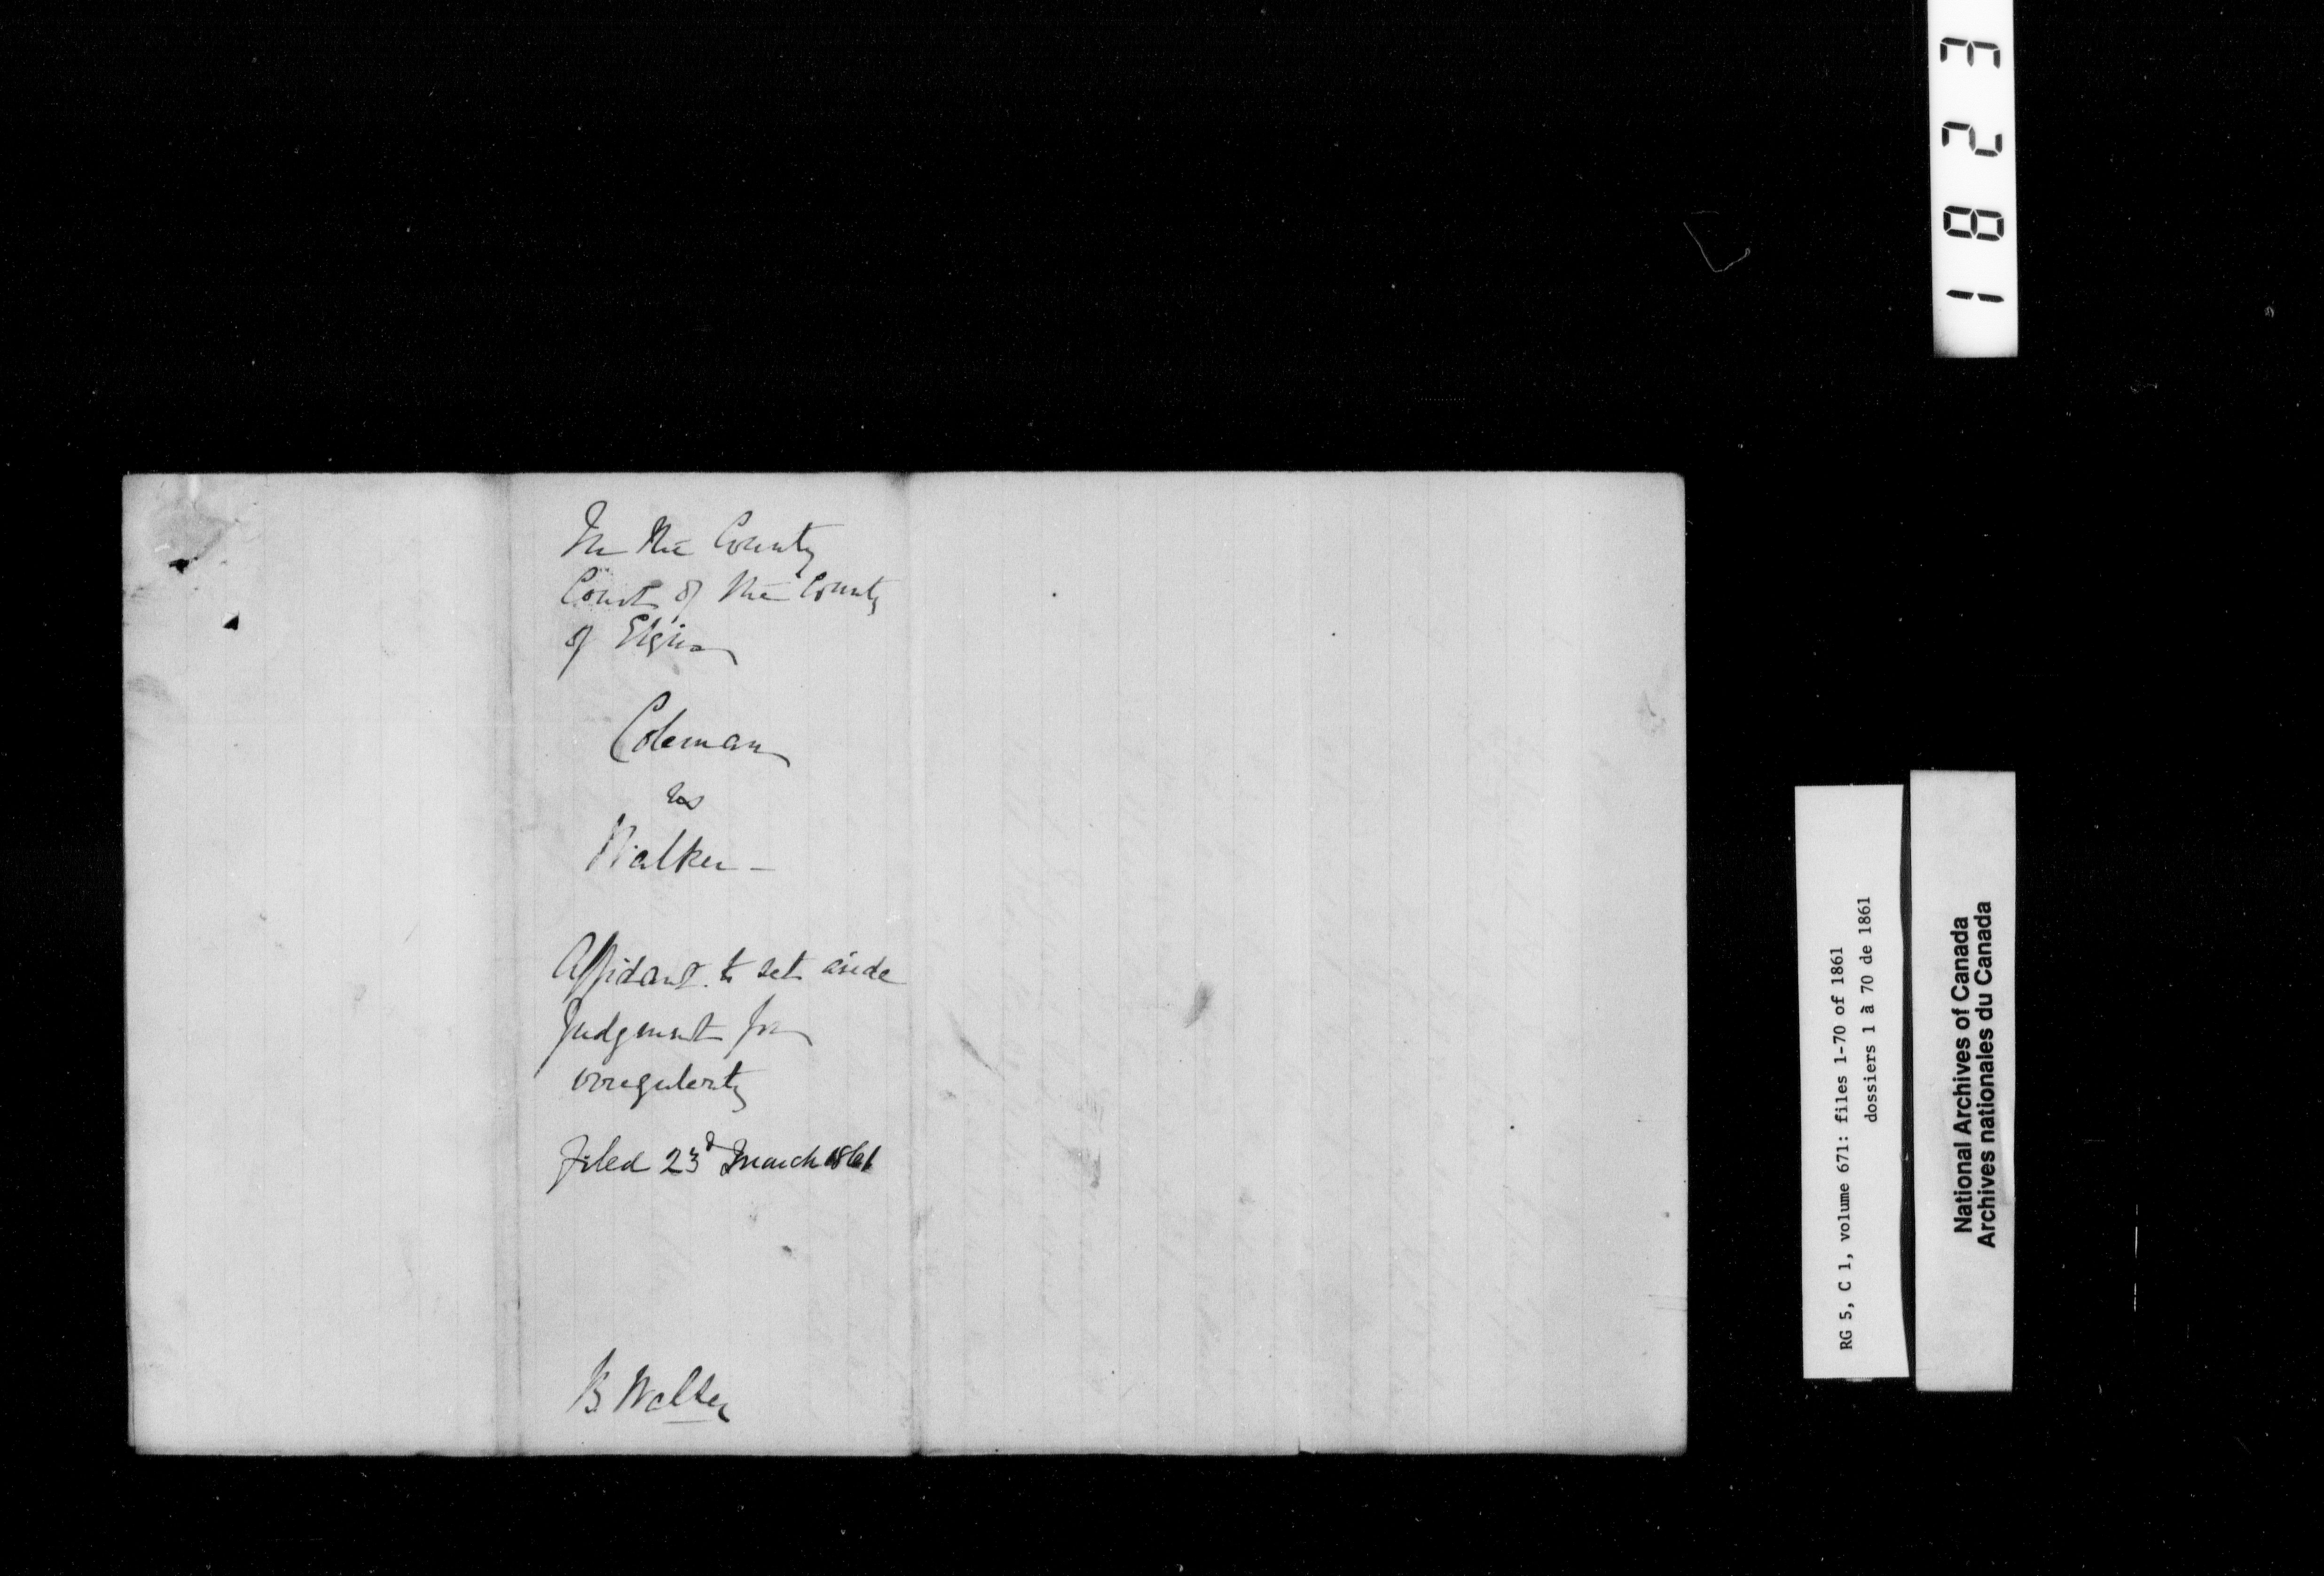 In the County
Court of the County
of Elgin
Coleman
vs
Walker –
Affidavit to set aside
Judgment for
irregularity
Filed 23d March 1861
B. Walker
1823
RG 5, C 1, volume 671: files 1-70 of 1861
dossiers 1 à 70 de 1861
National Archives of Canada
Archives nationales du Canada